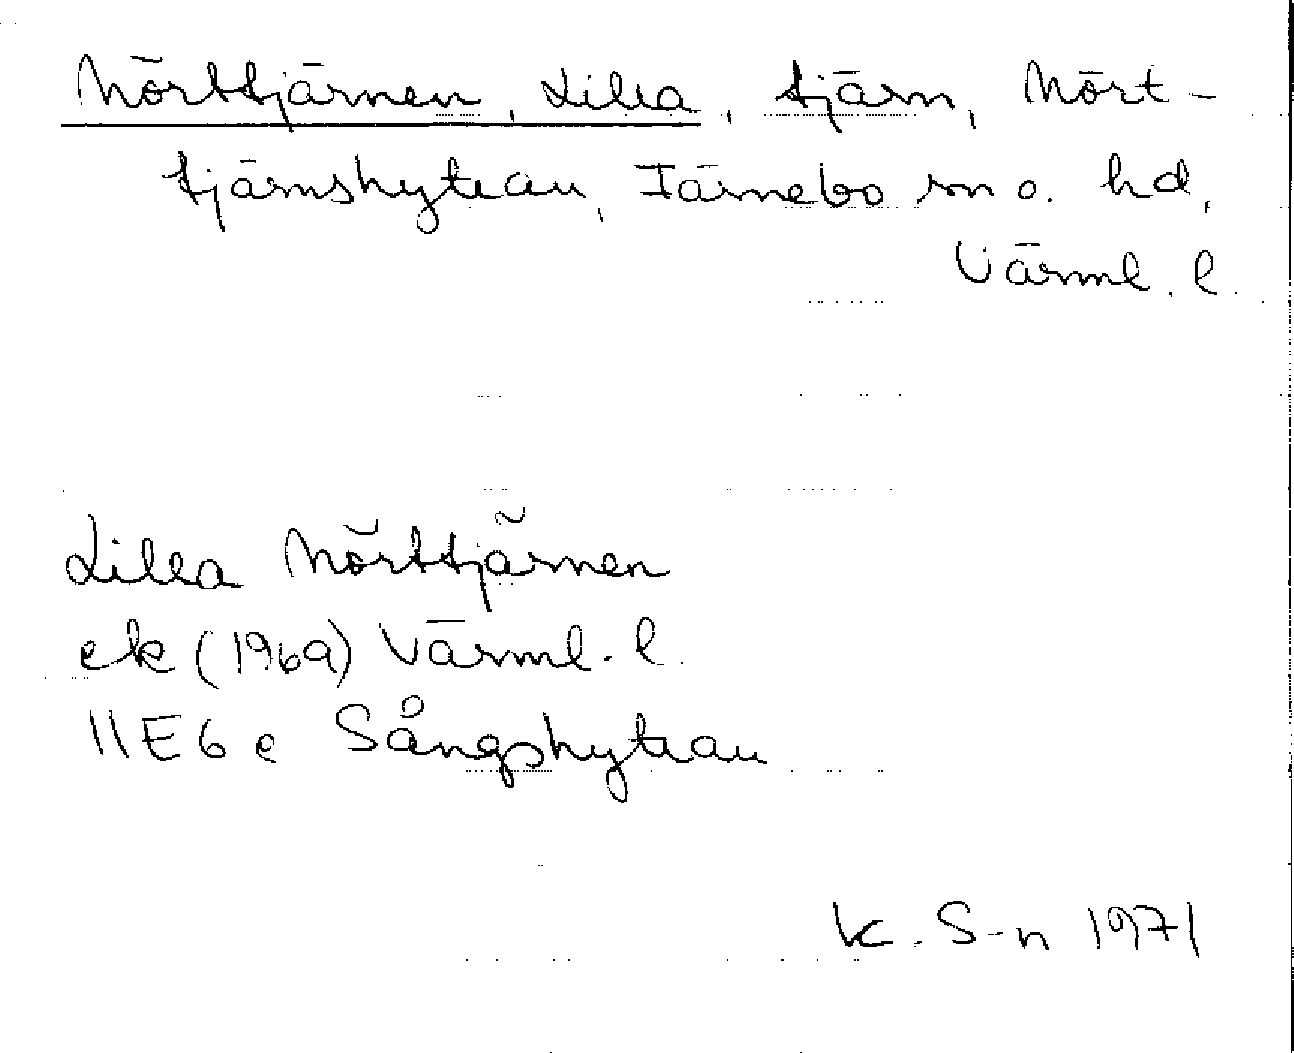 Mörttjärnen, Lilla, tjärn, Mört-
tjärnshyttan, Färnebo sn o. hd,
Värml. l.
Lilla Mörttjärnen
ek (1969) Värml. l.
11E6e Sångshyttan
K. S-n 1971